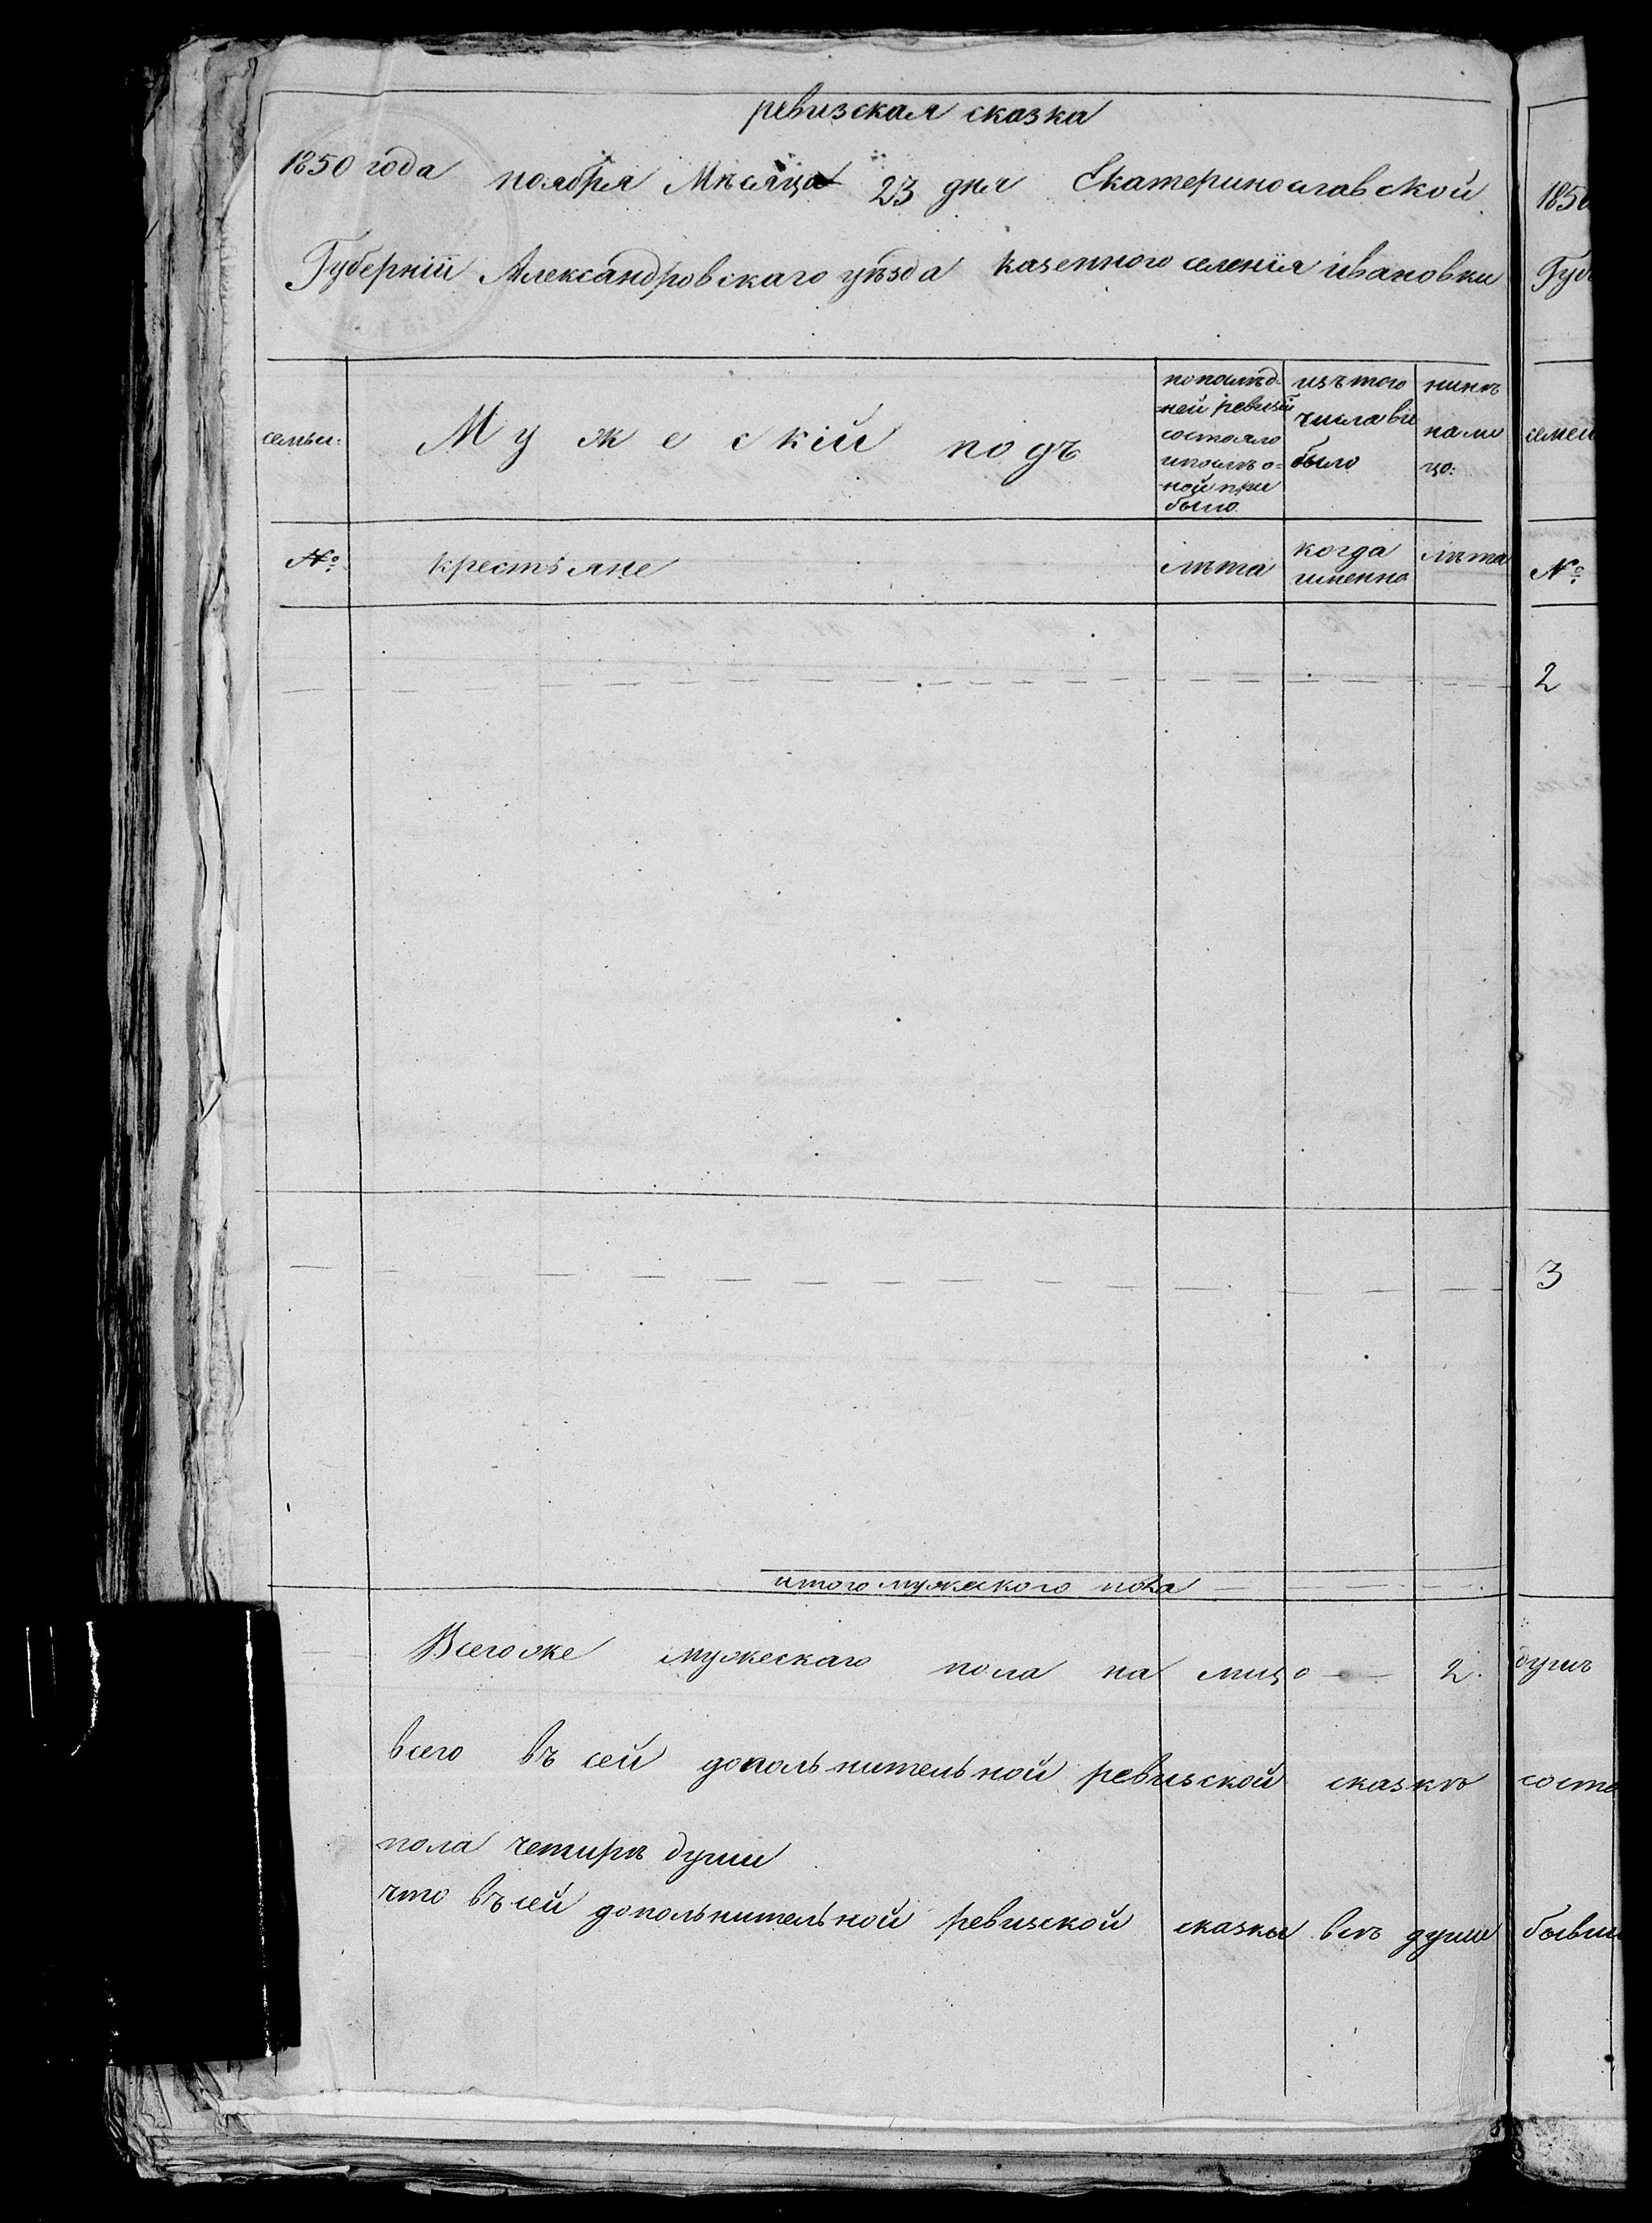 ревизская сказка
1850 года ноября Мѣсяца 23 дня Екатеринославской
Губерніи Александровскаго уѣзда казенного селенія ивановки
семьи:
Мужескій подъ
попослѣд-
ней ревизіи
состояло
ипослѣ о-
ной при
было.
изъ того
числа вы
было
нинѣ
на ли
цо:
№
крестьяне
лѣта
когда
именно
лѣта
итого мужеского пола
Всегоже мужескаго пола на лицо 2.
всего въ сей допольнительной ревизской сказкѣ
пола четирѣ души
что въ сей допольнительной ревизской сказки всѣ души
1850
Губе
семей
№
2
3
душъ
состо
бывши